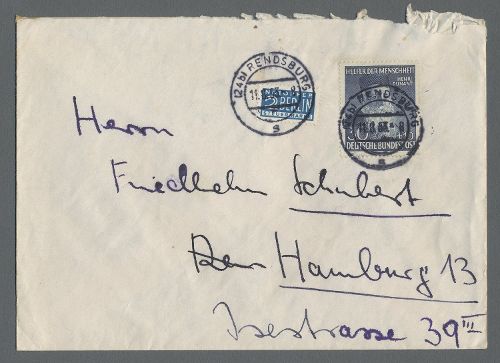 (24b) RENDSBURG
a
NOTOPFER
2 BERLIN
STEUERMARKE
HELFER DER MENSCHHEIT
HENRI DUNANT
(24b) RENDSBURG
30+15
DEUTSCHE BUNDESPOST
a
Herrn
Friedhelm Schubert
Hamburg 13
Isestrasse 39 III